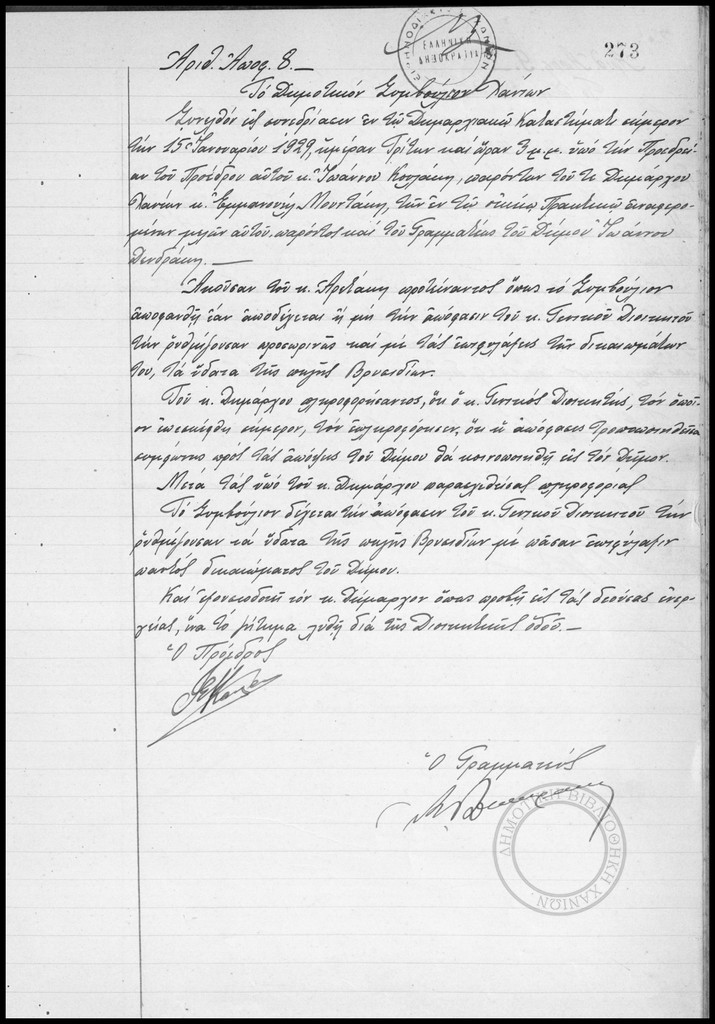 273
ΕΙΡΗΝΟΔΙΚΕΙΟΝ ΧΑΝΙΩΝ
ΕΛΛΗΝΙΚΗ
ΔΗΜΟΚΡΑΤΙΑ
Ἀριθ. Ἀποφ. 8. —
Τὸ Δημοτικὸν Συμβούλιον Χανίων
Συνελθὸν εἰς συνεδρίασιν ἐν τῷ Δημαρχιακῷ Καταστήματι σήμερον
τὴν 15 Ἰανουαρίου 1929, ἡμέραν Τρίτην καὶ ὥραν 3 μ.μ. ὑπὸ τὴν Προεδρεί
αν τοῦ Προέδρου αὐτοῦ κ. Ἰωάννου, παρόντων τοῦ κ. Δημάρχου
Χανίων κ. Ἐμμανουὴλ Μουντάκη, τῶν ἐν τῷ Πρακτικῷ ἀναφερο
μένων μελῶν αὐτοῦ, παρόντος καὶ τοῦ Γραμματέως τοῦ Δήμου Ἰωάννου
Δενδράκη. —
Ἀκοῦσαν τοῦ κ. προτείναντος ὅπως τὸ Συμβούλιον
ἀποφανθῇ ἐὰν ἀποδέχεται ἢ μὴ τὴν ἀπόφασιν τοῦ κ. Γενικοῦ Διοικητοῦ
τὴν ῥυθμίζουσαν προσωρινῶς καὶ μὲ τὰς ἐπιφυλάξεις τῶν δικαιωμάτων
του, τὰ ὕδατα τῆς πηγῆς Βρυσιδίων.
Τοῦ κ. Δημάρχου πληροφορήσαντος, ὅτι ὁ κ. Γενικὸς Διοικητής, τὸν ὁποῖ
ον ἐπεσκέφθη σήμερον, τὸν ἐπληροφόρησεν, ὅτι ἡ ἀπόφασις τροποποιηθεῖσα
συμφώνως πρὸς τὰς ἀπόψεις τοῦ Δήμου θὰ κοινοποιηθῇ εἰς τὸν Δῆμον.
Μετὰ τὰς ὑπὸ τοῦ κ. Δημάρχου παρασχεθείσας πληροφορίας
Τὸ Συμβούλιον δέχεται τὴν ἀπόφασιν τοῦ κ. Γενικοῦ Διοικητοῦ τὴν
ῥυθμίζουσαν τὰ ὕδατα τῆς πηγῆς Βρυσιδίων μὲ πᾶσαν ἐπιφύλαξιν
παντὸς δικαιώματος τοῦ Δήμου.
Καὶ ἐξουσιοδοτεῖ τὸν κ. Δήμαρχον ὅπως προβῇ εἰς τὰς δεούσας ἐνερ
γείας, ἵνα τὸ ζήτημα λυθῇ διὰ τῆς Διοικητικῆς ὁδοῦ. —
Ὁ Πρόεδρος
Ὁ Γραμματεὺς
ΔΗΜΟΤΙΚΗ ΒΙΒΛΙΟΘΗΚΗ ΧΑΝΙΩΝ